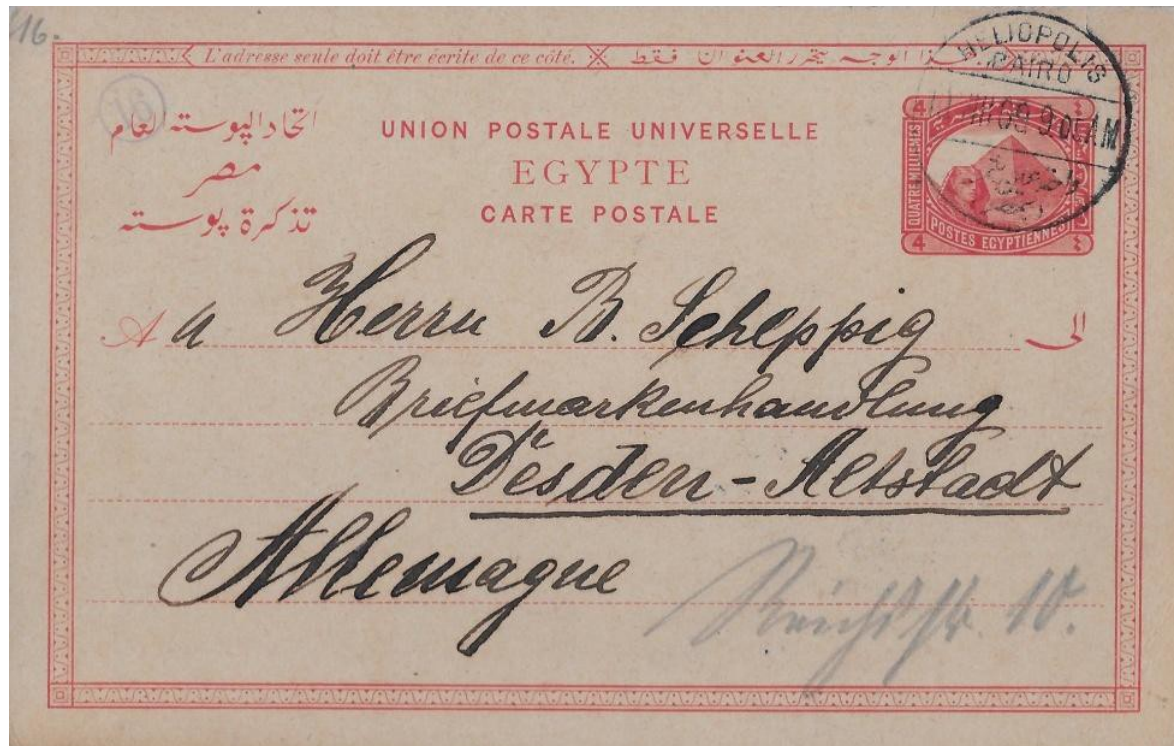 16.
L'adresse seule doit être écrite de ce côté. هذا الوجه يحرر العنوان فقط
HELIOPOLIS
CAIRO
9 00 AM
16
اتحاد البوسته العام
مصر
تذكرة بوسته
UNION POSTALE UNIVERSELLE
EGYPTE
CARTE POSTALE
4
QUATRE MILLIEMES
POSTES EGYPTIENNES
4 ٤
A a Herrn B. Schleppig الى
Briefmarkenhandlung
Desden-Altstadt
Allemagne
Reichsstr. 10.